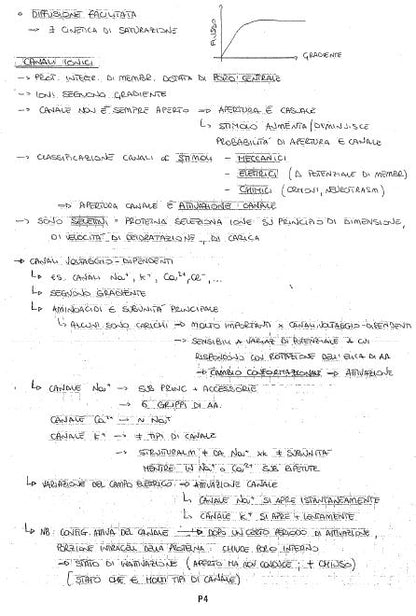 • DIFFUSIONE FACILITATA
→ ∃ CINETICA DI SATURAZIONE
FLUSSO
GRADIENTE
CANALI IONICI
→ PROT. INTEGR. DI MEMBR. DOTATA DI PORO CENTRALE
→ IONI SEGUONO GRADIENTE
→ CANALE NON È SEMPRE APERTO ⇒ APERTURA È CASUALE
↳ STIMOLO AUMENTA/DIMINUISCE
PROBABILITÀ DI APERTURA E CANALE
→ CLASSIFICAZIONE CANALI STIMOLI - MECCANICI
- ELETTRICI (Δ POTENZIALE DI MEMBR)
- CHIMICI (ORMONI, NEUROTRASM)
⇒ APERTURA CANALE È ATTIVAZIONE CANALE
→ SONO SELETTIVI = PROTEINA SELEZIONA IONE SU PRINCIPIO DI DIMENSIONE,
DI VELOCITÀ DI DEIDRATAZIONE, DI CARICA
→ CANALI VOLTAGGIO-DIPENDENTI
↳ ES. CANALI Na⁺, K⁺, Ca²⁺, Cl⁻, ...
↳ SEGUONO GRADIENTE
↳ AMINOACIDI E SUBUNITÀ PRINCIPALE
↳ ALCUNI SONO CARICHI → MOLTO IMPORTANTI X CANALI VOLTAGGIO-DIPENDENTI
→ SENSIBILI A VARIAZ DI POTENZIALE A CUI
RISPONDONO CON ROTAZIONE DELL'ELICA DI AA
→ CAMBIO CONFORMAZIONALE → ATTIVAZIONE
↳ CANALE Na⁺ → SUB PRINC + ACCESSORIE
→ 6 GRUPPI DI AA.
CANALE Ca²⁺ → ~ Na⁺
CANALE K⁺ → ≠ TIPI DI CANALE
→ STRUTTURALM ≠ DA Na⁺ XK ≠ SUBUNITÀ
MENTRE IN Na⁺ o Ca²⁺ SUB RIPETUTE
↳ VARIAZIONE DEL CAMPO ELETTRICO → ATTIVAZIONE CANALE
↳ CANALE Na⁺ SI APRE ISTANTANEAMENTE
↳ CANALE K⁺ SI APRE + LENTAMENTE
↳ NB: CONFIG. ATTIVA DEL CANALE → DOPO UN CERTO PERIODO DI ATTIVAZIONE,
PORZIONE INTRACELL DELLA PROTEINA CHIUDE PORO INTERNO
→ STATO DI INATTIVAZIONE (APERTO MA NON CONDUCE; ≠ CHIUSO)
(STATO CHE È MOLTI TIPI DI CANALE)
P4